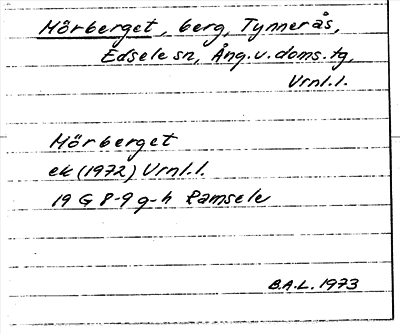 Mörberget, berg, Tynnerås,
Edsele sn, Ång. v. doms. tg,
Vrnl.l.
Mörberget
ek (1972) Vrnl.l.
19 G 8-9 g-h Ramsele
B.A.L. 1973